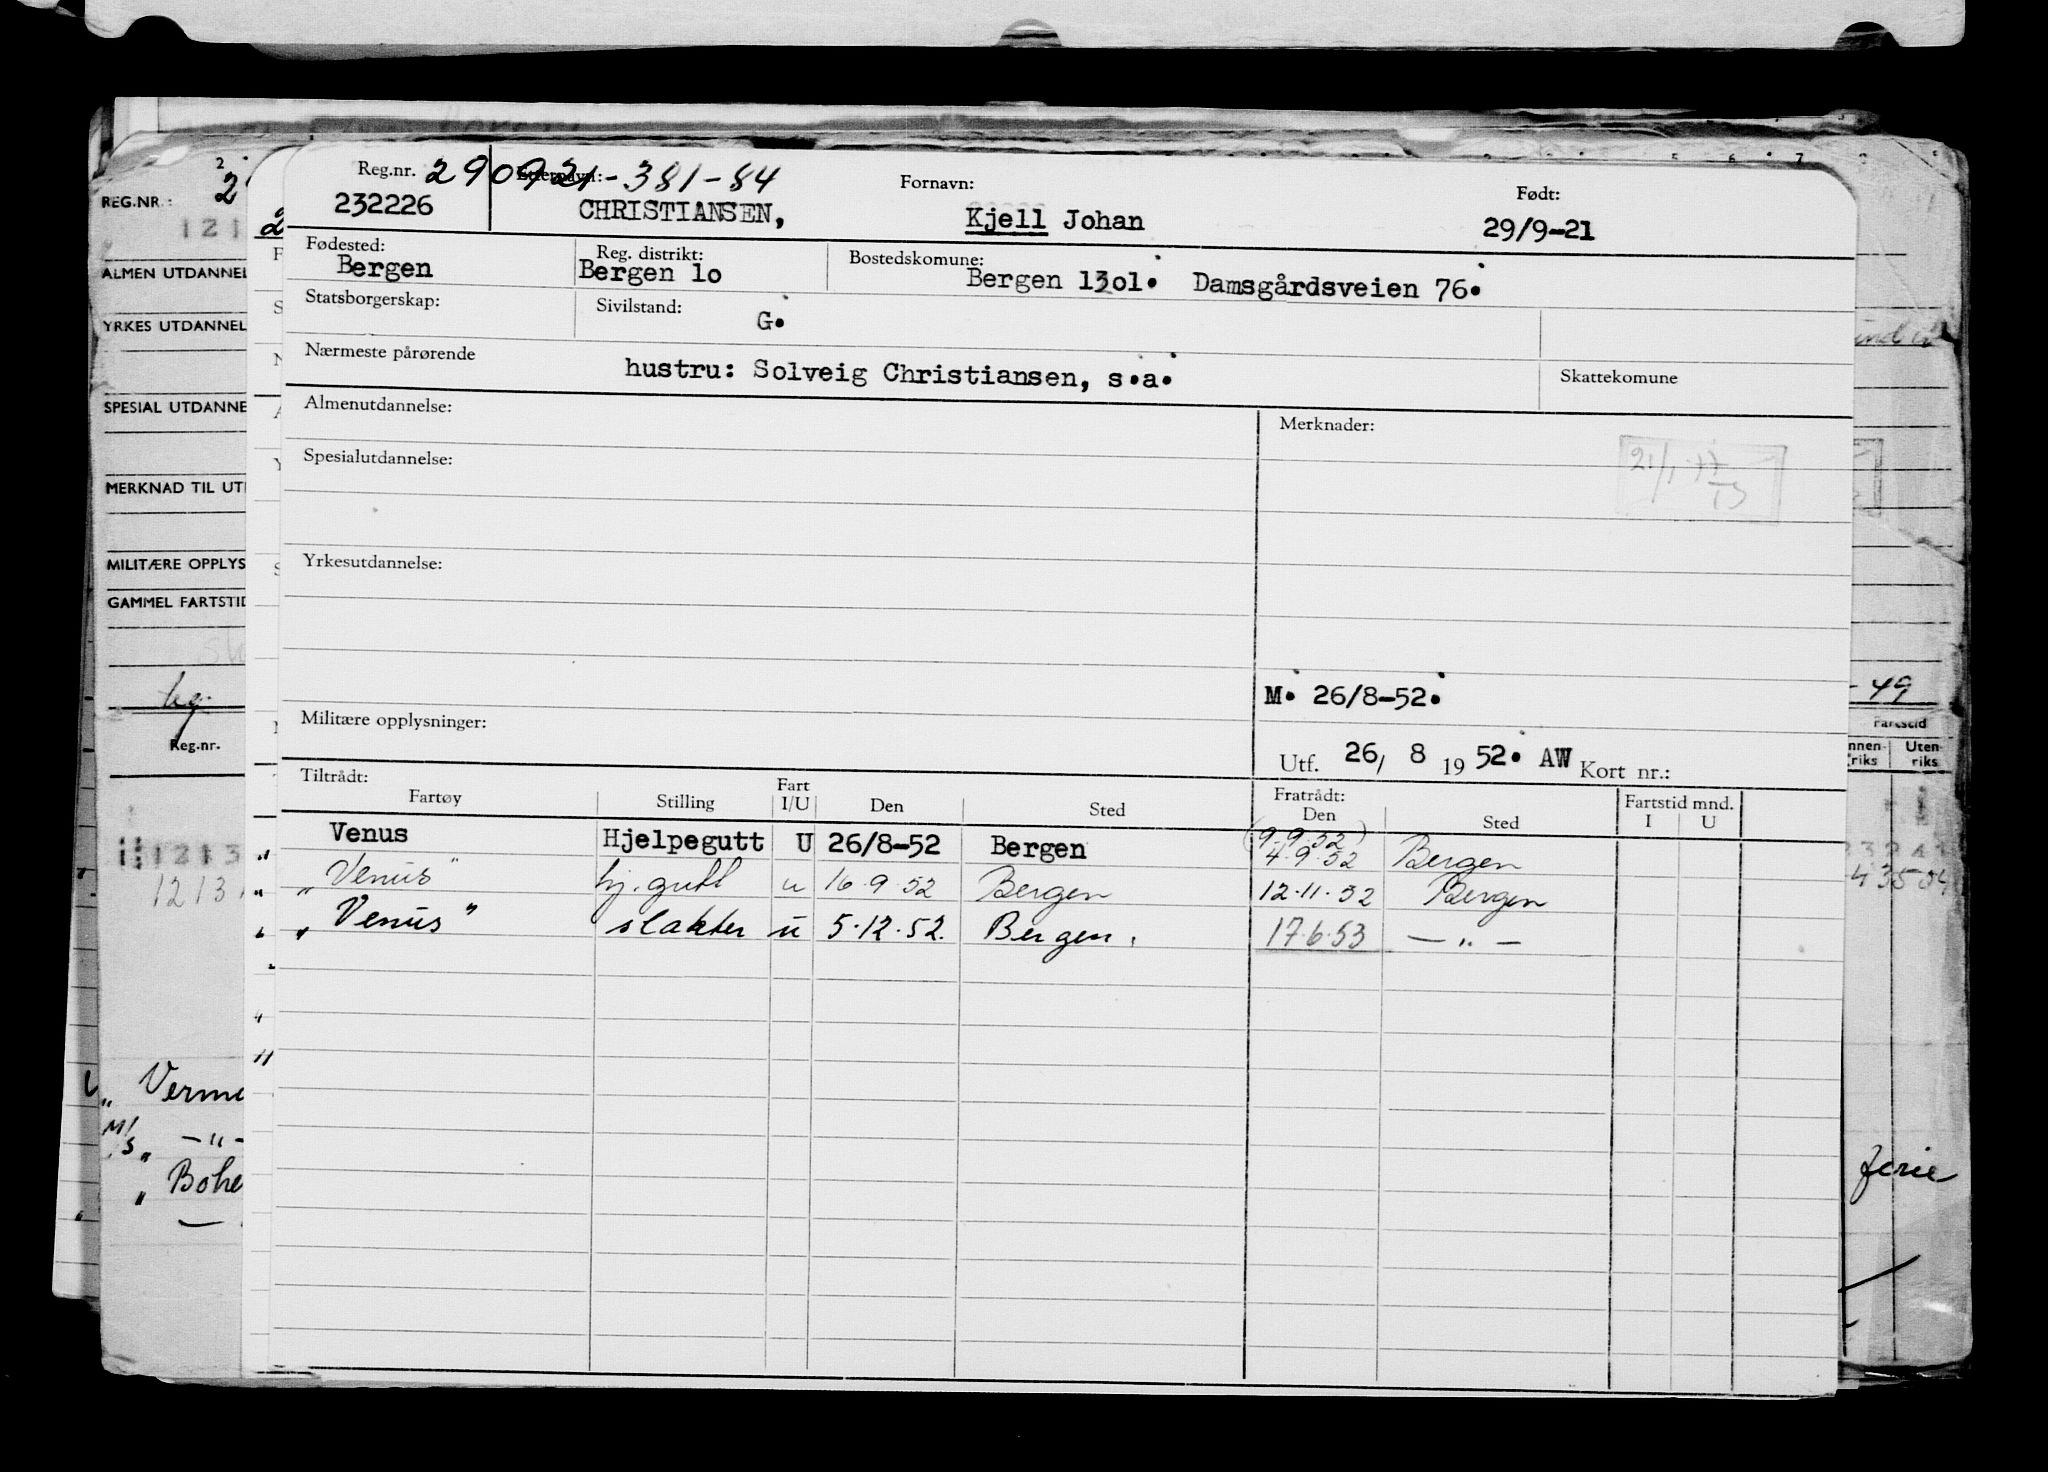 Reg.nr. 290921-381-84 Fornavn: Født:
232226 CHRISTIANSEN, Kjell Johan 29/9-21
Fødested: Reg. distrikt: Bostedskomune:
Bergen Bergen 1o Bergen 13o1. Damsgårdsveien 76.
Statsborgerskap: Sivilstand: G.
Nærmeste pårørende hustru: Solveig Christiansen, s.a. Skattekomune
Almenutdannelse: Merknader:
Spesialutdannelse:
Yrkesutdannelse:
M. 26/8-52.
Militære opplysninger:
Utf. 26, 8 19 52. AW Kort nr.:
Tiltrådt: Fratrådt: Fartstid mnd.
Fartøy Stilling Fart I/U Den Sted Den Sted I U
(9.9.52)
Venus Hjelpegutt U 26/8-52 Bergen 4.9.52 Bergen
„Venus" hj.gutt u 16.9.52 Bergen 12.11.52 Bergen
„Venus" slakter u 5.12.52. Bergen. 17.6.53 — „ —
REG.NR.: 2
ALMEN UTDANNEL
YRKES UTDANNEL
SPESIAL UTDANNE
MERKNAD TIL UT
MILITÆRE OPPLYS
GAMMEL FARTSTID
Reg.nr.
- 49
Fartstid
nnen-riks Uten-riks
1213
1213
43504
„ Verm
M/S „ — „ -
„ Bohe
ferie